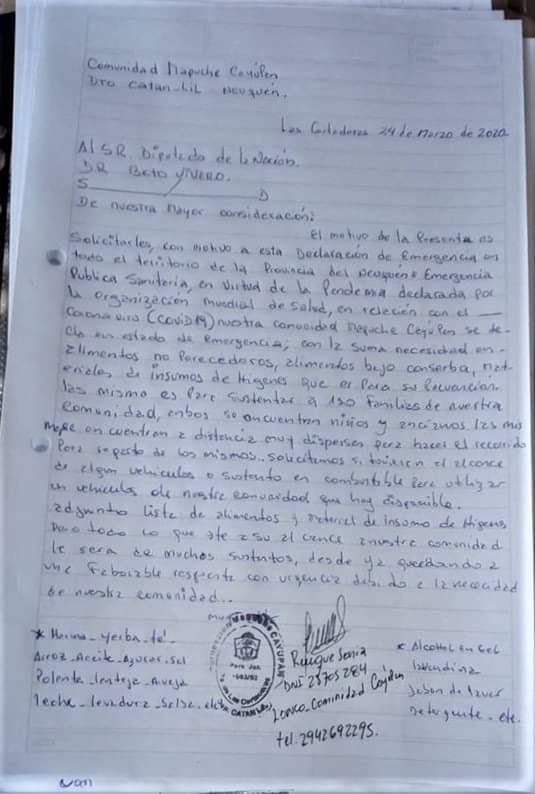 Comunidad Mapuche Cayupan
Dto Catan-Lil Neuquén.
Las Cortaderas 24 de Marzo de 2020
Al SR. Diputado de la Nación.
DR Beto VIVERO.
S D
De nuestra Mayor consideración:
El motivo de la Presente es
Solicitarles, con motivo a esta Declaración de Emergencia en
todo el territorio de la Provincia del Neuquén e Emergencia
Publica Sanitaria, en Virtud de la Pandemia declarada por
la organización mundial de Salud, en relación con el
coronavirus (COVID19) nuestra comunidad Mapuche Cayupan se de-
cla en estado de emergencia; con la suma necesidad en-
alimentos no Perecederos, alimentos bajo conserba, mat-
eriales de insumos de Higenes que es Para su Prevencion
las mismo es Para sustentar a 150 familias de nuestra
comunidad, enbos se encuentran niños y ancianos las mis
mose en cuentran a distancia muy dispersas para hacer el recorrido
Para reparto de los mismos.. solicitamos si tuvieran el alcance
de algun vehiculos o sustento en combustible Para utilizar
en vehiculos de nuestra comunidad que hay disponible.
adjunto lista de alimentos y material de insumo de Higenes
Para todo lo que este a su al cance a nuestra comunidad
le sera de muchos sustentos, desde ya quedando a
una Faborable respuesta con urgencia debido a la necesidad
de nuestra comunidad..
* Harina - yerba - té -
Arroz - Aceite - Azucar - Sal
Polenta - lenteja - Arveja
leche - levadura - Salsa. etc.
CAYUPÁN
Pers. Jur.
CATAN LIL
Ranque Sonia
DNI 25705284
Lonco Comunidad Cayupan
tel. 2942692295.
* Alcohol en Gel
lavandina
Jabon de lavar
detergente - etc.